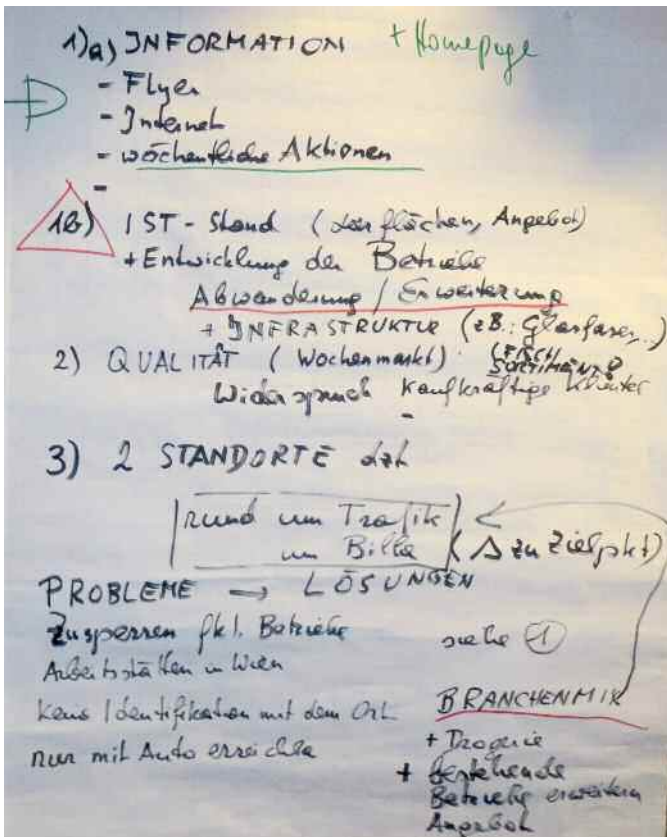 1)a) INFORMATION + Homepage
- Flyer
- Internet
- wöchentliche Aktionen
-
1b) IST-Stand (Leerflächen, Angebot)
+ Entwicklung der Betriebe
Abwanderung / Erweiterung
+ INFRASTRUKTUR (zB.: Glasfaser,..)
2) QUALITÄT (Wochenmarkt) (FISCH/
SORTIMENT?
Widerspruch Kaufkräftige
-
3) 2 STANDORTE dzt
rund um Trafik
um Billa (Δ zu Zielpkt)
PROBLEME → LÖSUNGEN
Zusperren Betriebe siehe ①
Arbeitsstätten in Wien
Keine Identifikation mit dem Ort
nur mit Auto erreichba
BRANCHENMIX
+ Drogerie
+ bestehende
Betriebe erweitern
Angebot